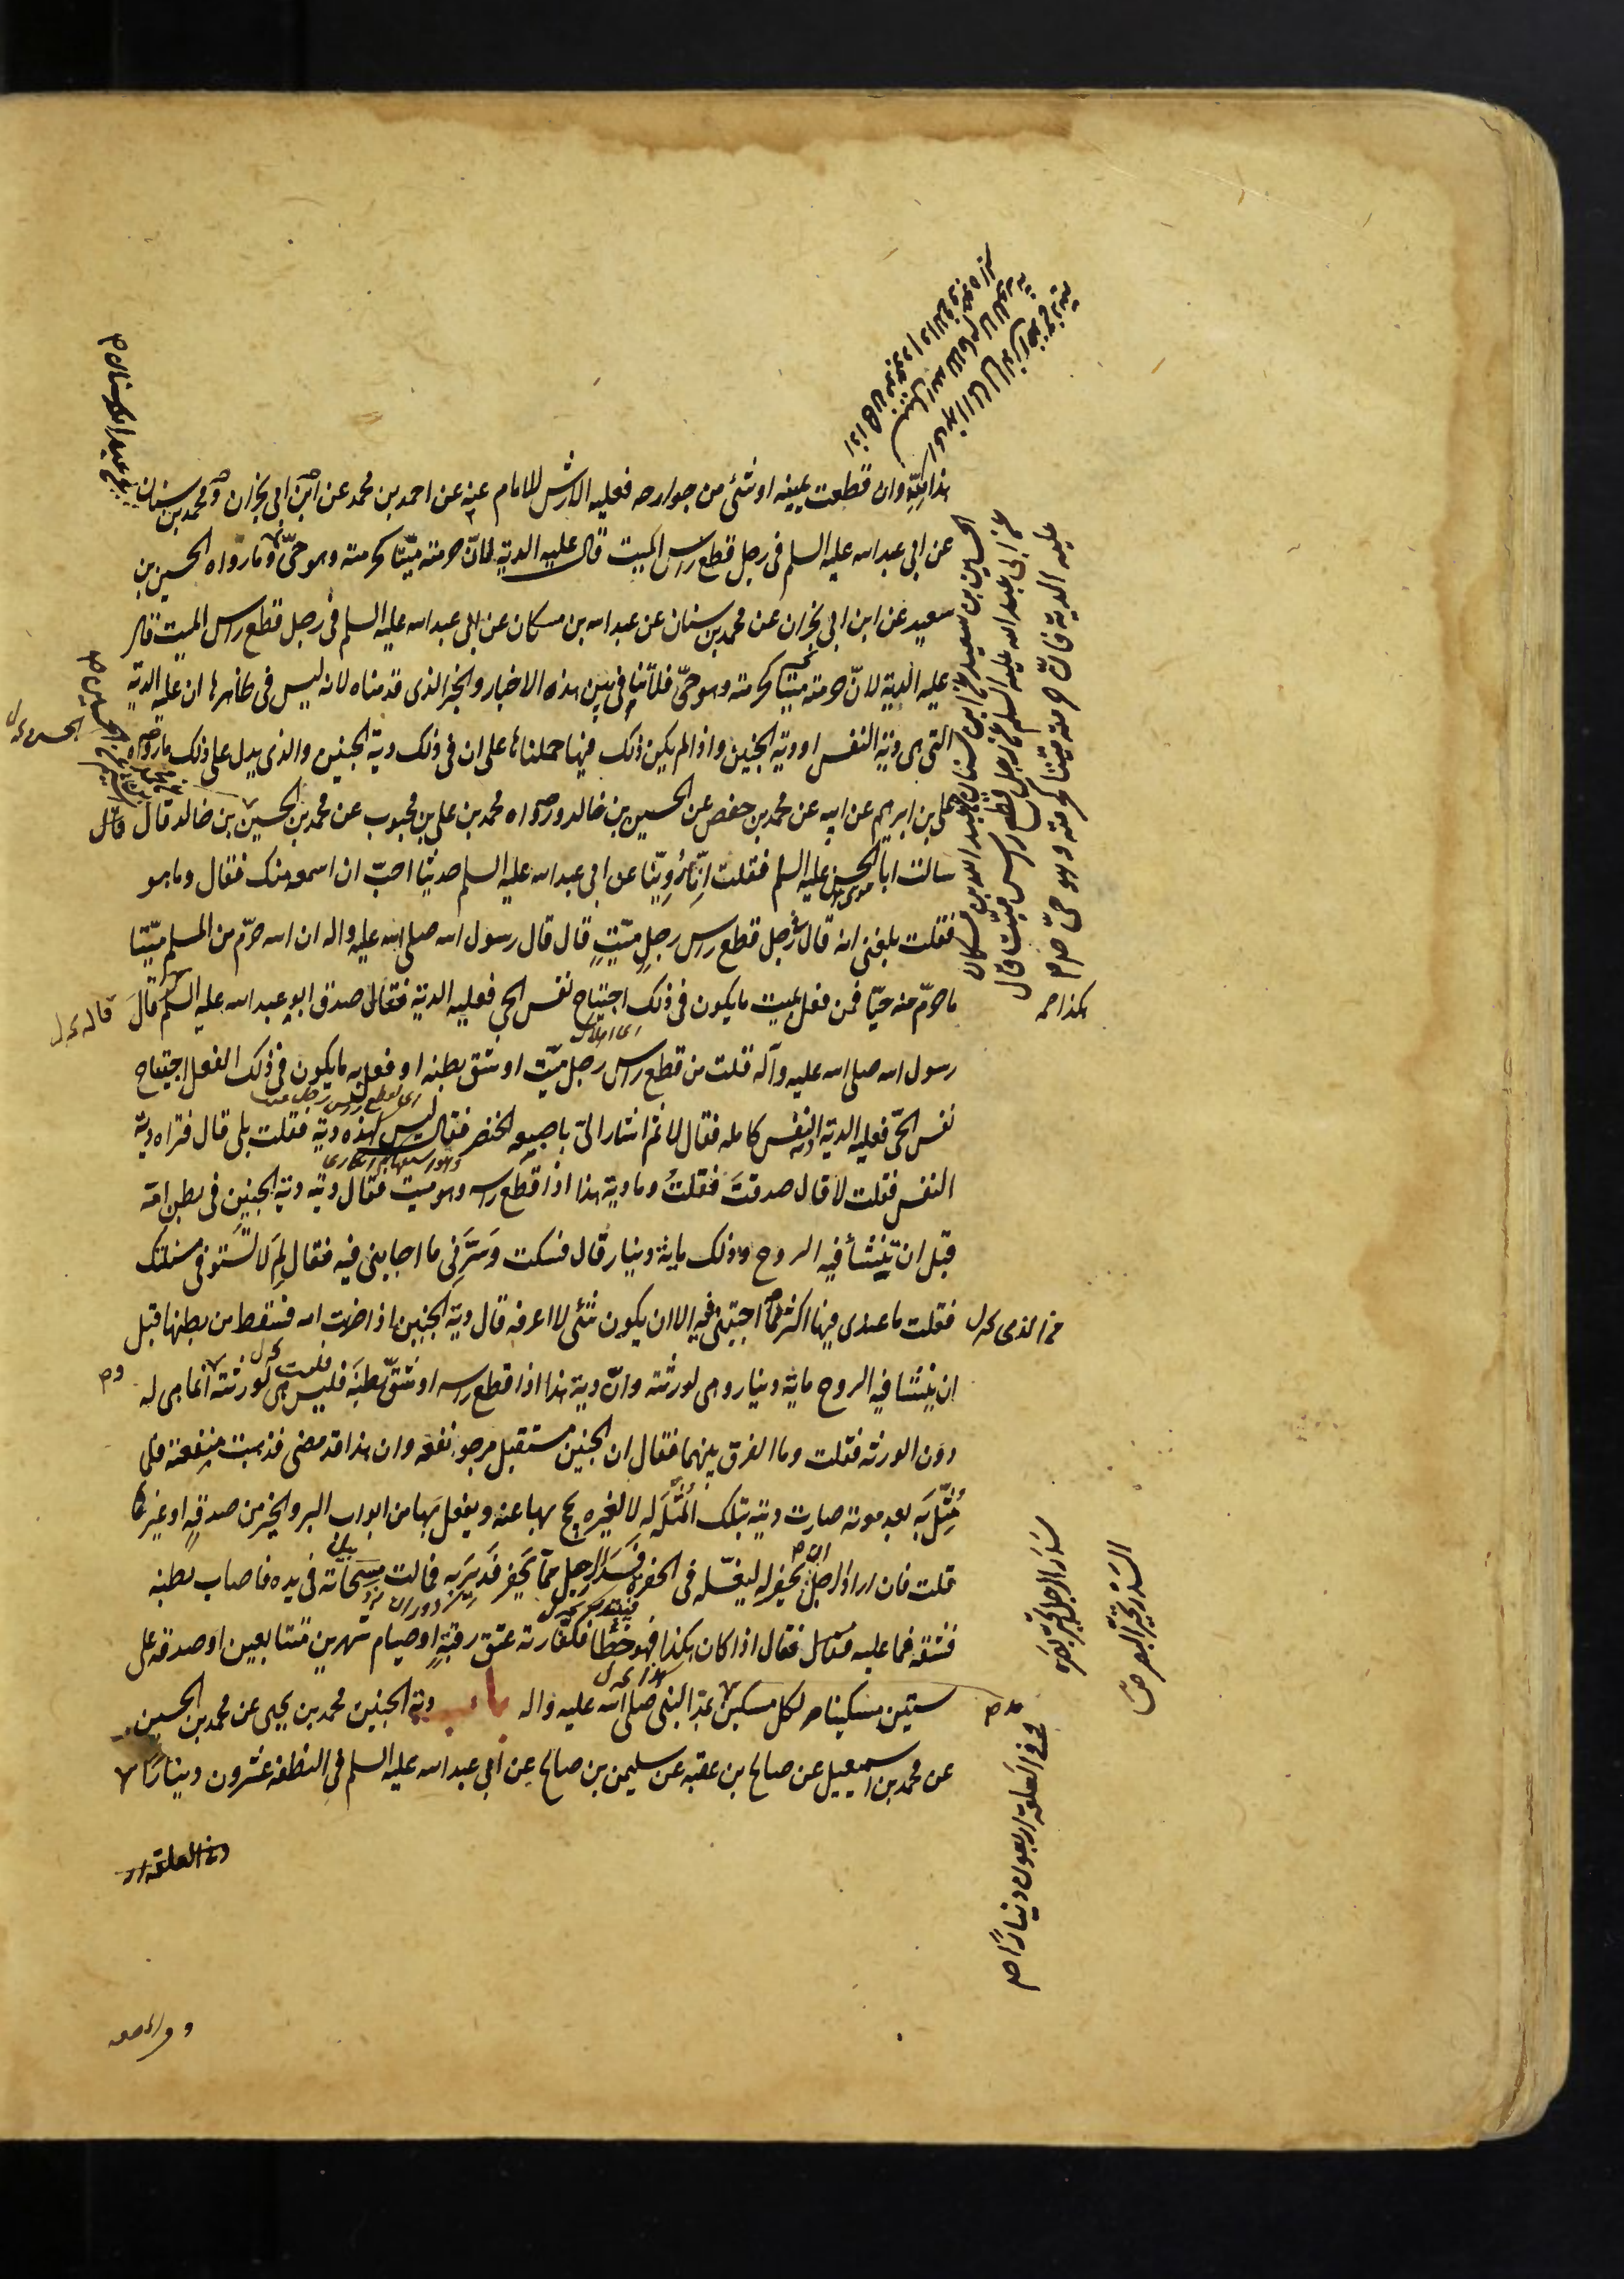 هذا كله وان قطعت يمينه او شئ من جوارحه فعليه الارش للامام عنه عن احمد بن محمد عن ابن ابى نجران ومحمد بن سنان
عن ابى عبد الله عليه السلم فى رجل قطع راس الميت قال عليه الدية لانّ حرمته ميّتا كحرمته وهو حىّ وما رواه الحسين بن
سعيد عن ابن ابى نجران عن محمد بن سنان عن عبد الله بن مسكان عن ابى عبد الله عليه السلم فى رجل قطع راس الميت قال
عليه الدية لانّ حرمته ميّتا كحرمته وهو حىّ فلا تنافى بين هذه الاخبار والخبر الذى قدمناه لانه ليس فى ظاهرها ان عليه الدية
التى هى دية النفس او دية الجنين واذا لم يكن ذلك فيها حملناها على ان فى ذلك دية الجنين والذى يدل على ذلك ما رواه
على بن ابرهيم عن ابيه عن محمد بن حفص عن الحسين بن خالد ورواه محمد بن على بن محبوب عن محمد بن الحسين بن خالد قال قال
سالت ابا الحسن عليه السلم فقلت انّا رُوّينا عن ابى عبد الله عليه السلم حديثا احبّ ان اسمعه منك فقال وما هو
فقلت بلغنى انه قال فى رجل قطع راس رجل ميّتٍ قال قال رسول الله صلى الله عليه واله ان الله حرّم من المسلم ميّتا
ما حرّم منه حيّا فمن فعل بميت ما يكون فى ذلك اجتياح نفس الحى فعليه الدية فقال صدق ابو عبد الله عليه السلم هكذا قال
رسول الله صلى الله عليه وآله قلت من قطع راس رجل ميّت او شق بطنه او فعل به ما يكون فى ذلك الفعل اجتياح
نفس الحىّ فعليه الدية دية النفس كامله فقال لا ثم اشار الىّ باصبعه الخنصر فقال اليس لهذه دية فقلت بلى قال فتراه دية
النفس فقلت لا قال صدقتَ فقلتُ وما دية هذا اذا قطع راسه وهو ميت فقال ديته دية الجنين فى بطن امّه
قبل ان ينشأ فيه الروح وذلك ماية دينار قال فسكت وَسَرَّنى ما اجابنى فيه فقال لِمَ لا تستوفى مسئلتك
فقلت ما عندى فيها اكثر ممّا اجبتنى فيه الا ان يكون شئى لا اعرفه قال دية الجنين اذا ضربت امه فسقط من بطنها قبل
ان ينشا فيه الروح ماية دينار وهى لورثته وانّ دية هذا اذا قطع راسه او شقّ بطنَه فليس هى لورثته انما هى له
دون الورثه فقلت وما الفرق بينهما فقال ان الجنين مستقبل مرجو نفعه وان هذا قد مضى فذهبت منفعته فلما
مُثِّلَ به بعد موته صارت ديته بتلك المُثْلَه له لا لغيره يحج بها عنه ويفعل بها من ابواب البر والخير من صدقةٍ او غيرها
قلت فان اراد الرجل ان يحفر له ليغسّله فى الحفره فسَدِر الرجل ممّا يحفر فَدِيرَ به فمالت مِسحاته فى يده فاصاب بطنه
فشقه فما عليه فقال اذا كان هكذا فهو خطأ فكفّارته عتق رقبةٍ او صيام شهرين متتابعين او صدقه على
ستين مسكينا مد لكل مسكين بمدّ النبى صلى الله عليه واله باب دية الجنين محمد بن يحيى عن محمد بن الحسين
عن محمد بن اسمعيل عن صالح بن عقبه عن سليمن بن صالح عن ابى عبد الله عليه السلم فى النطفه عشرون دينارًا
الحسين بن سعيد عن ابن سنان عن عبد الله بن مسكان
عن ابى عبد الله عليه السلم عن رجل قطع راس ميّت قال
عليه الدية فانّ حرمته ميّتا كحرمته وهو حىّ
وفى العلقة اربعون دينارًا
سَدِرَ الرجل تحيّر بصره
السَّدَر تحيّر البصر
وفى العلقة